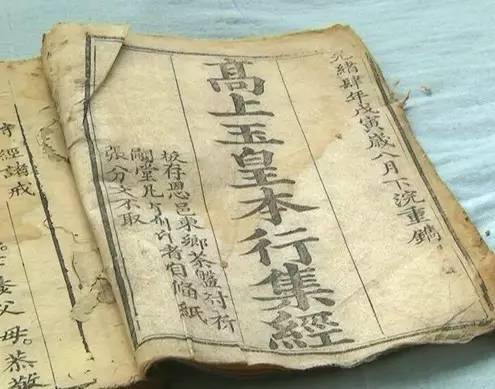 光緒肆年戊寅歲八月下浣重鐫
高上玉皇本行集經
板存恩邑東鄉茶盤村行
凡印者自備紙
張分文不取
經諸戒
父母。恭敬